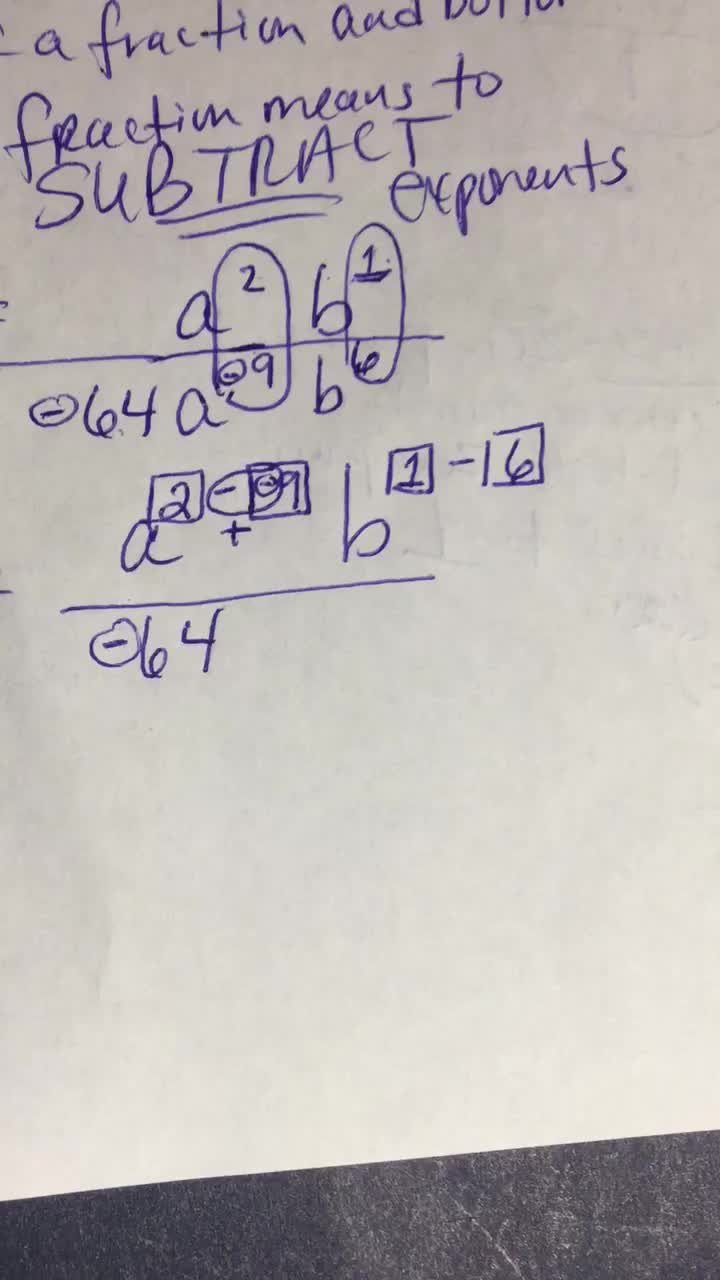 a fraction and
fraction means to
SUBTRACT exponents
= a² b¹
⊖64 a^⊖9 b⁶
a^2-⊖9 b^1-6
+
⊖64